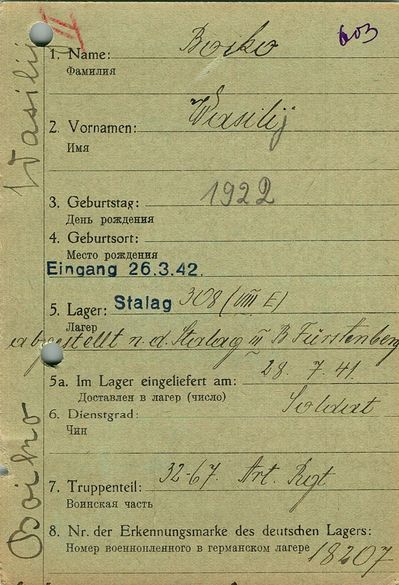 603
1. Name: Boiko
Фамилия
2. Vornamen: Wasilij
Имя
3. Geburtstag: 1922
День рождения
4. Geburtsort:
Место рождения
Eingang 26.3.42.
5. Lager: Stalag 308 (VIII E)
Лагер
abgestellt n. d. Stalag III B Fürstenberg
5a. Im Lager eingeliefert am: 28. 7. 41.
Доставлен в лагер (число)
6. Dienstgrad: Soldat
Чин
7. Truppenteil: 32-67. Art. Rgt.
Воинская часть
8. Nr. der Erkennungsmarke des deutschen Lagers:
Номер военнопленного в германском лагере 18207
Boiko Wasilij